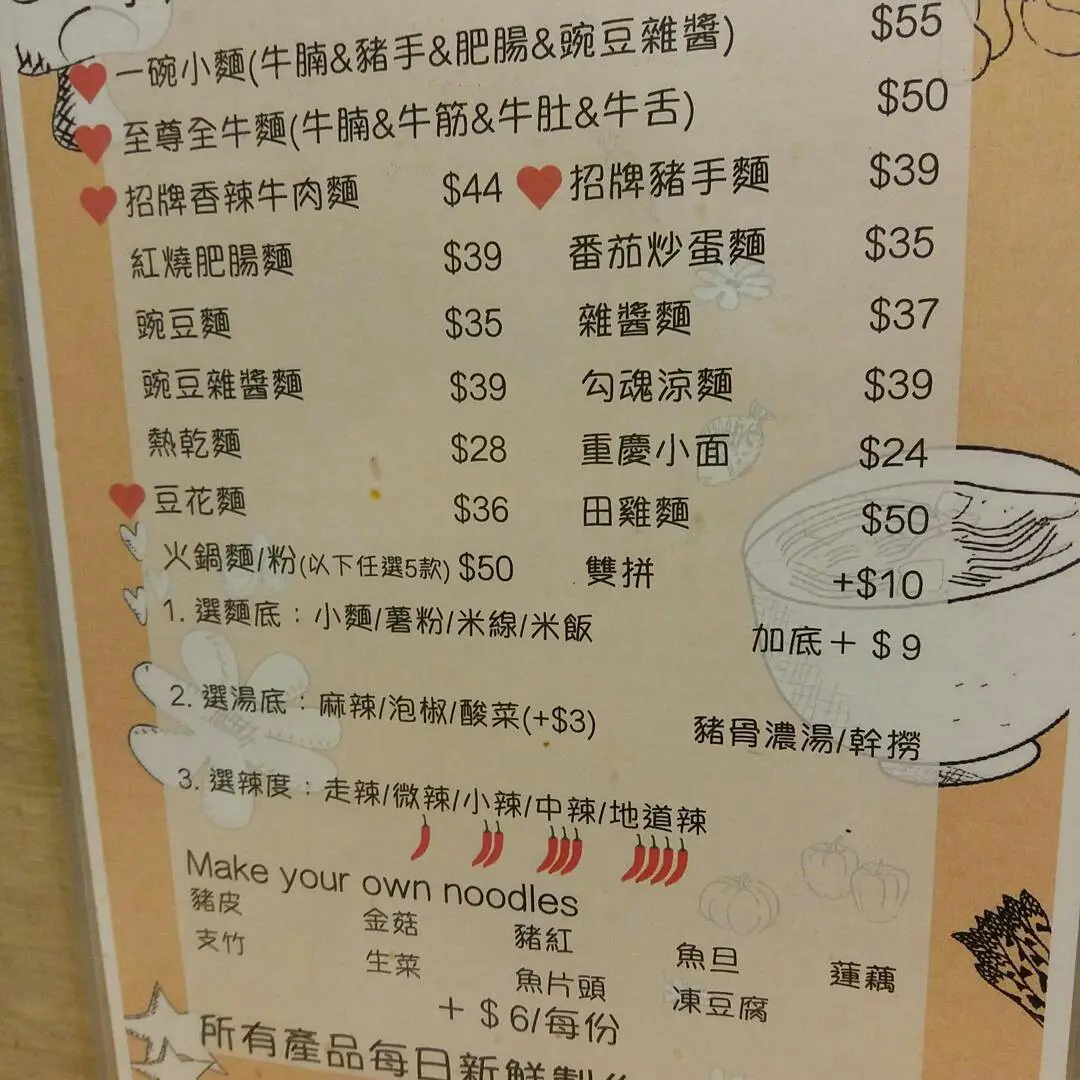 一碗小麵(牛腩&豬手&肥腸&豌豆雜醬) $55
至尊全牛麵(牛腩&牛筋&牛肚&牛舌) $50
招牌香辣牛肉麵 $44 招牌豬手麵 $39
紅燒肥腸麵 $39 番茄炒蛋麵 $35
豌豆麵 $35 雜醬麵 $37
豌豆雜醬麵 $39 勾魂涼麵 $39
熱乾麵 $28 重慶小面 $24
豆花麵 $36 田雞麵 $50
火鍋麵/粉(以下任選5款) $50 雙拼 +$10
1. 選麵底：小麵/薯粉/米線/米飯 加底＋＄9
2. 選湯底：麻辣/泡椒/酸菜(+$3) 豬骨濃湯/幹撈
3. 選辣度：走辣/微辣/小辣/中辣/地道辣
Make your own noodles
豬皮 金菇 豬紅 魚旦 蓮藕
支竹 生菜 魚片頭 凍豆腐
＋＄6/每份
所有產品每日新鮮製